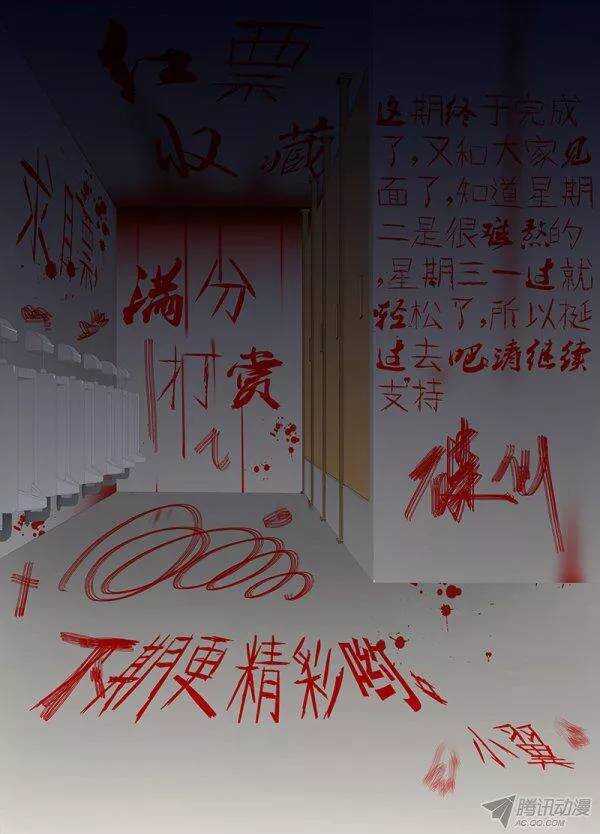 红票
收藏
求月票
满分
打赏
这期终于完成
了,又和大家见
面了,知道星期
二是很难熬的
,星期三一过就
轻松了,所以挺
过去吧,请继续
支持
下期更精彩哟。
小翼
腾讯动漫
AC.QQ.COM